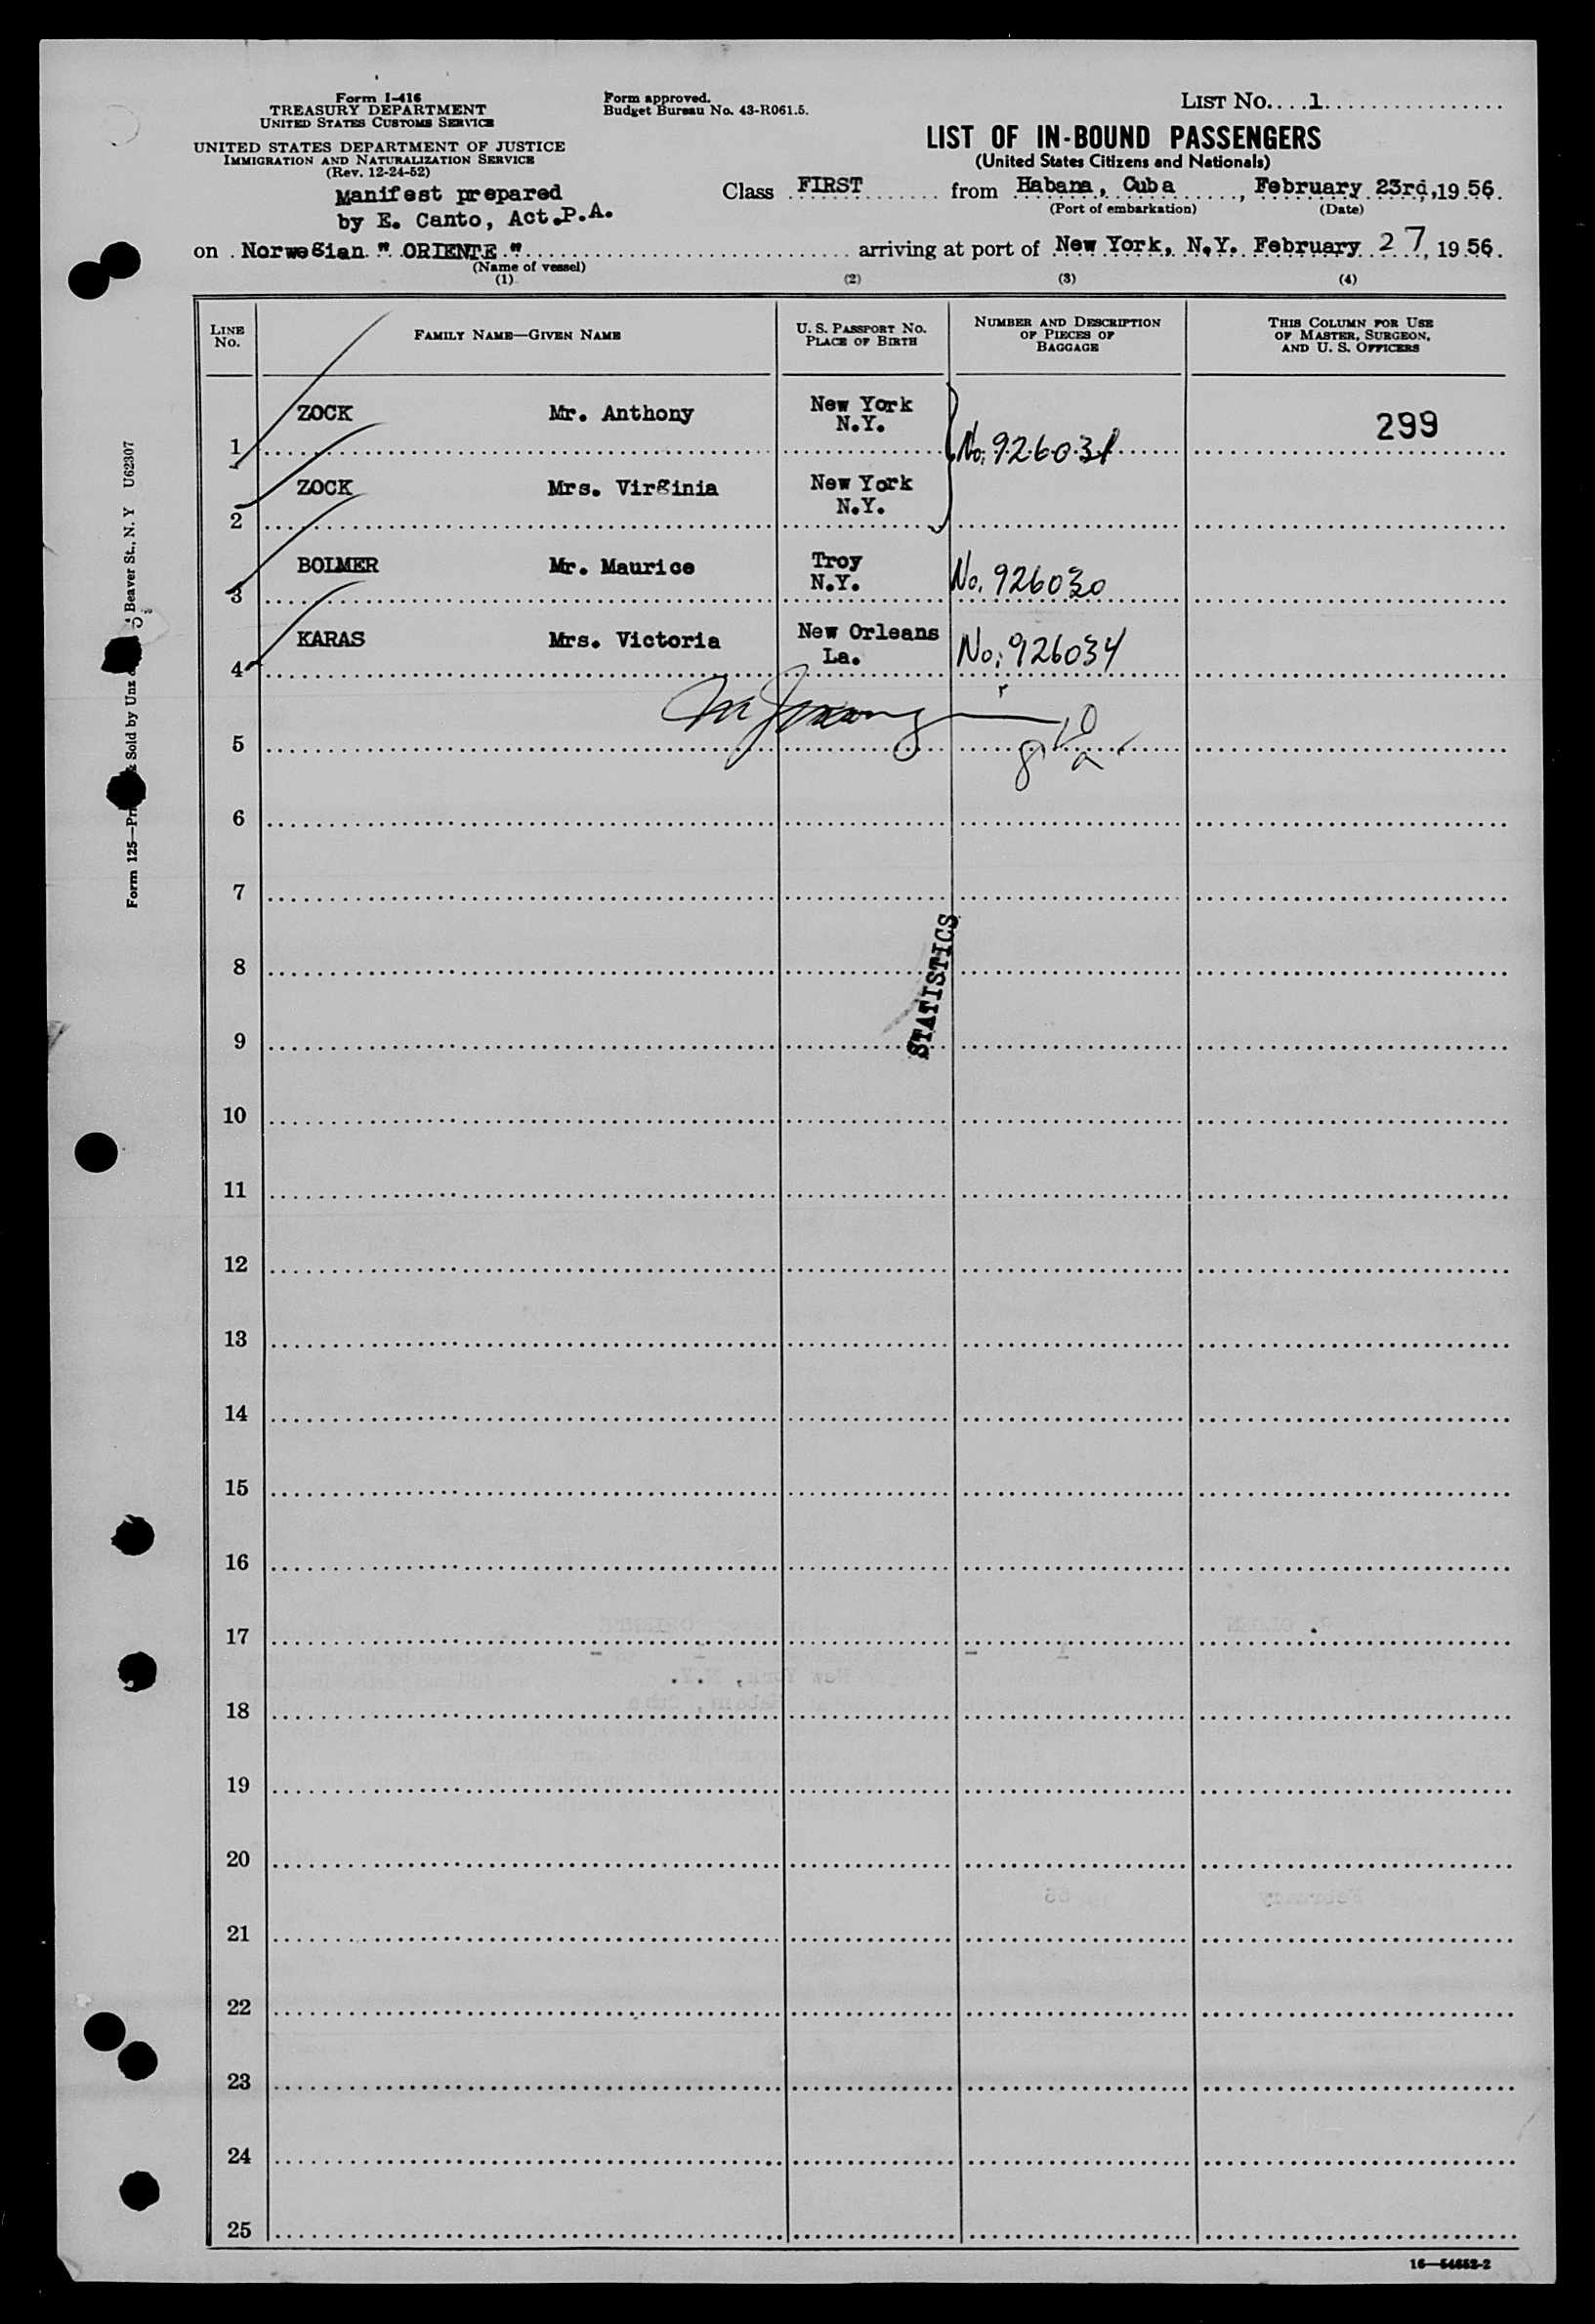 Form I-416
TREASURY DEPARTMENT
UNITED STATES CUSTOMS SERVICE
UNITED STATES DEPARTMENT OF JUSTICE
IMMIGRATION AND NATURALIZATION SERVICE
(Rev. 12-24-52)
Form approved.
Budget Bureau No. 43-R061.5.
LIST NO....1
LIST OF IN-BOUND PASSENGERS
(United States Citizens and Nationals)
Manifest prepared
by E. Canto, Act.P.A.
Class FIRST from Habana, Cuba, February 23rd,1956.
(Port of embarkation) (Date)
on Norwegian " ORIENTE " arriving at port of New York, N.Y. February 27, 1956.
(Name of vessel)
(1) (2) (3) (4)
LINE NO. FAMILY NAME—GIVEN NAME U. S. PASSPORT NO. PLACE OF BIRTH NUMBER AND DESCRIPTION OF PIECES OF BAGGAGE THIS COLUMN FOR USE OF MASTER, SURGEON, AND U. S. OFFICERS
1 ZOCK Mr. Anthony New York N.Y. No. 926031 299
2 ZOCK Mrs. Virginia New York N.Y.
3 BOLMER Mr. Maurice Troy N.Y. No. 926030
4 KARAS Mrs. Victoria New Orleans La. No. 926034
5
6
7
8
STATISTICS
9
10
11
12
13
14
15
16
17
18
19
20
21
22
23
24
25
16—54652-2
Form 125— Sold by Unz Beaver St., N. Y U62307